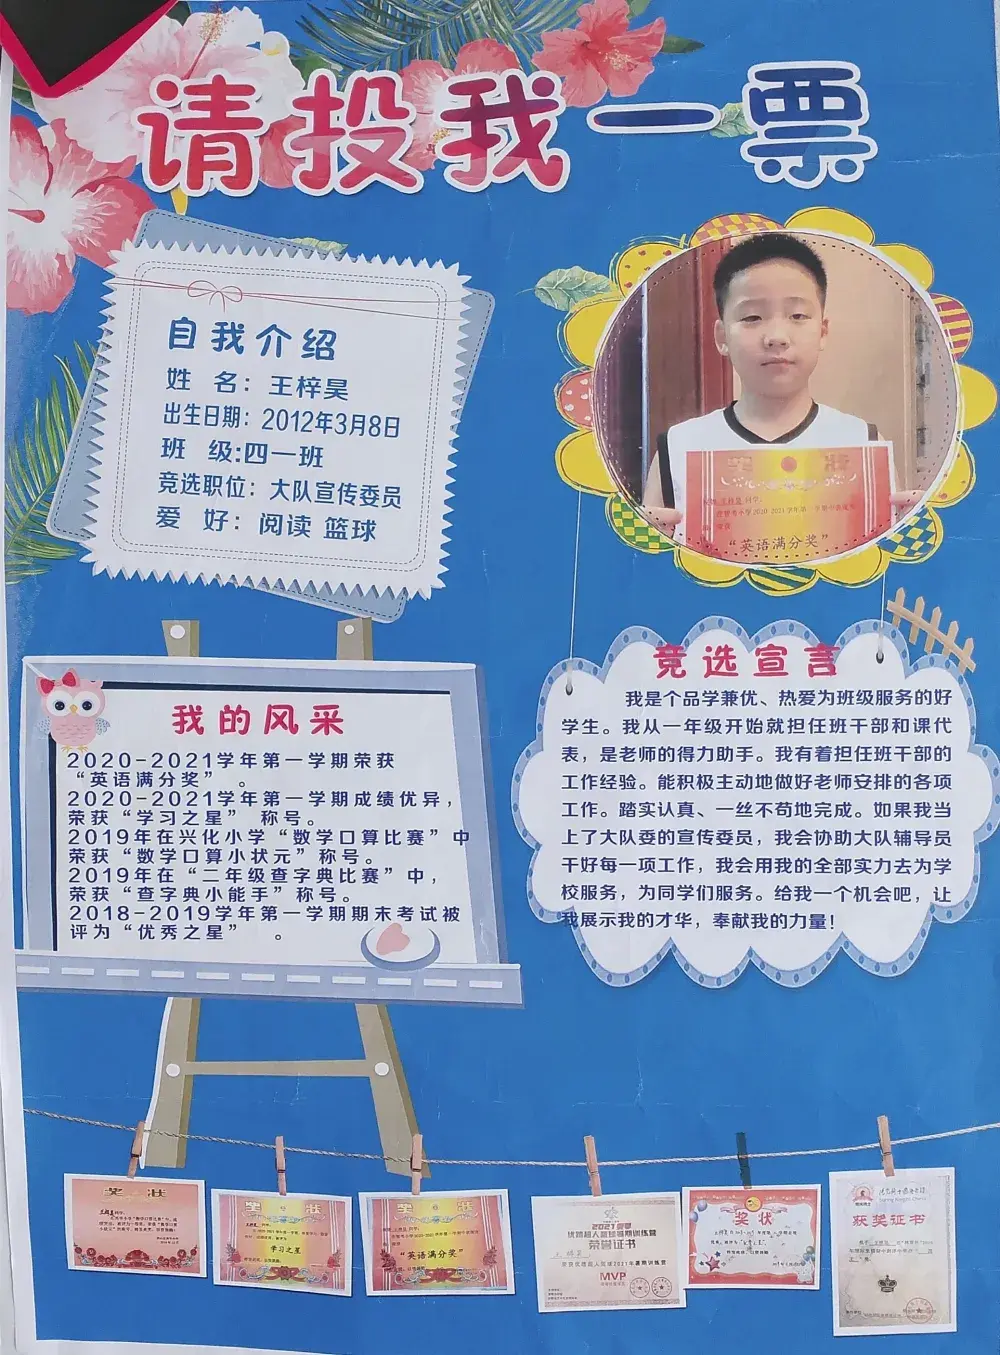 请投我一票
自我介绍
姓 名：王梓昊
出生日期：2012年3月8日
班 级:四一班
竞选职位：大队宣传委员
爱 好：阅读 篮球
奖 状
“英语满分奖”
我的风采
2020-2021学年第一学期荣获
“英语满分奖”。
2020-2021学年第一学期成绩优异，
荣获“学习之星” 称号。
2019年在兴化小学“数学口算比赛”中
荣获“数学口算小状元”称号。
2019年在“二年级查字典比赛”中，
荣获“查字典小能手”称号。
2018-2019学年第一学期期末考试被
评为“优秀之星” 。
竞选宣言
我是个品学兼优、热爱为班级服务的好
学生。我从一年级开始就担任班干部和课代
表，是老师的得力助手。我有着担任班干部的
工作经验。能积极主动地做好老师安排的各项
工作。踏实认真、一丝不苟地完成。如果我当
上了大队委的宣传委员，我会协助大队辅导员
干好每一项工作，我会用我的全部实力去为学
校服务，为同学们服务。给我一个机会吧，让
我展示我的才华，奉献我的力量！
奖 状
奖 状
学习之星
奖 状
“英语满分奖”
2021夏季
荣誉证书
MVP
奖 状
获奖证书